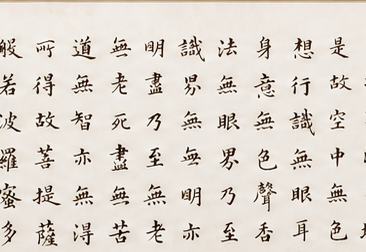 是故空中無色
想行識無眼耳
身意無色聲香
法無眼界乃至
識界無無明亦
明盡乃至無老
無老死盡無苦
道無智亦無得
所得故菩提薩
般若波羅蜜多